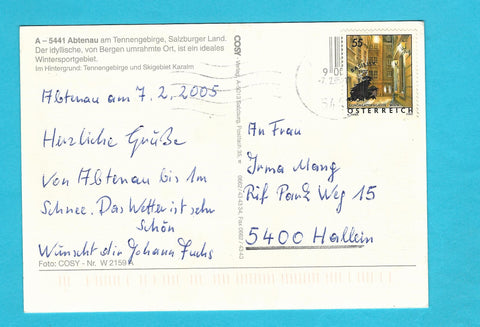 A – 5441 Abtenau am Tennengebirge, Salzburger Land.
Der idyllische, von Bergen umrahmte Ort, ist ein ideales
Wintersportgebiet.
Im Hintergrund: Tennengebirge und Skigebiet Karalm
Abtenau am 7.2.2005
Herzliche Grüße
von Abtenau bis 1m
Schnee. Das Wetter ist sehr
schön
Wünscht dir Johann Fuchs
Foto: COSY - Nr. W 2159
COSY
55
ÖSTERREICH
An Frau
Irma Mang
Rif Park Weg 15
5400 Hallein